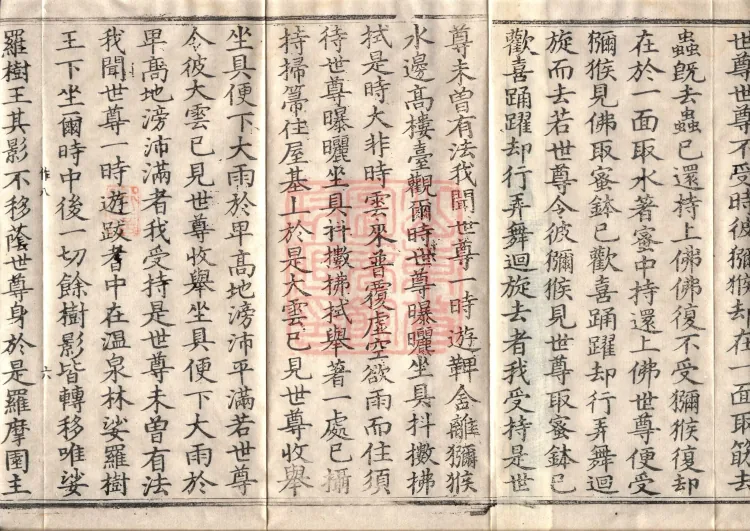 世尊世尊不受時彼獼猴却在一面取篩去
蟲旣去蟲已還持上佛佛復不受獼猴復却
在於一面取水著蜜中持還上佛世尊便受
獼猴見佛取蜜鉢已歡喜踊躍却行弄舞迴
旋而去若世尊令彼獼猴見世尊取蜜鉢已
歡喜踊躍却行弄舞迴旋去者我受持是世
尊未曾有法我聞世尊一時遊鞞舍離獼猴
水邊高樓臺觀爾時世尊曝曬坐具抖擻拂
拭是時大非時雲來普覆虛空欲雨而住須
待世尊曝曬坐具抖擻拂拭舉著一處已攝
持掃箒住屋基上於是大雲已見世尊收舉
坐具便下大雨於卑高地滂沛平滿若世尊
令彼大雲已見世尊收舉坐具便下大雨於
卑高地滂沛滿者我受持是世尊未曾有法
我聞世尊一時遊跋耆中在温泉林娑羅樹
王下坐爾時中後一切餘樹影皆轉移唯娑
羅樹王其影不移蔭世尊身於是羅摩園主
作八
六